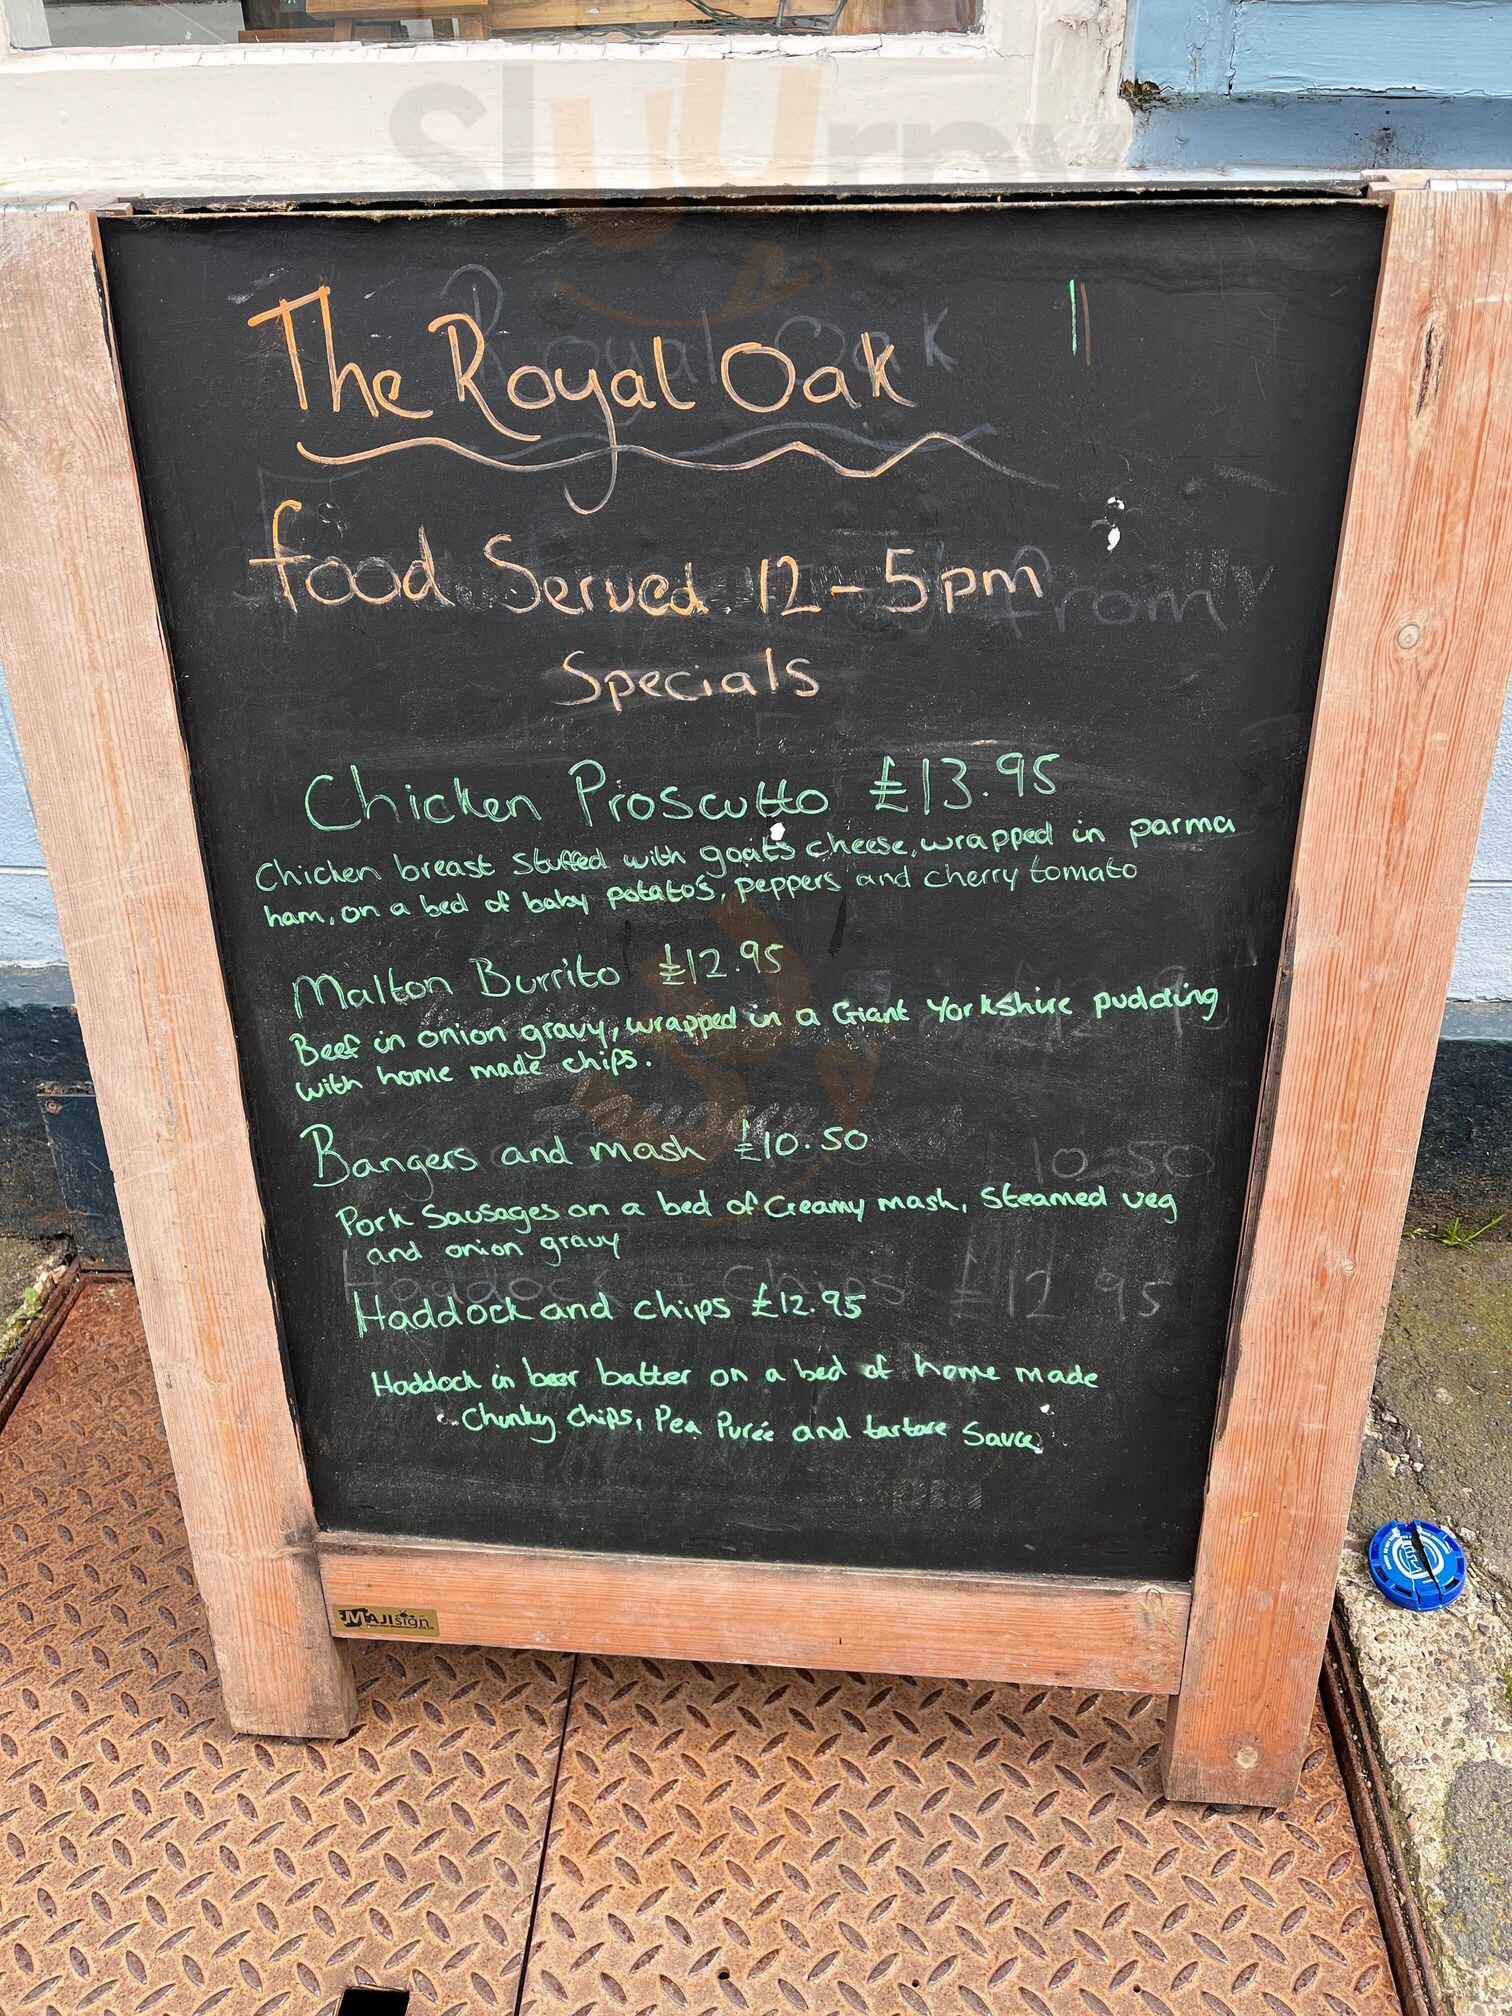 The Royal Oak
food Served 12-5pm
Specials
Chicken Proscutto £13.95
Chicken breast stuffed with goats cheese, wrapped in parma
ham, on a bed of baby potato's, peppers and cherry tomato
Malton Burrito £12.95
Beef in onion gravy, wrapped in a Giant Yorkshire pudding
with home made chips.
Bangers and mash £10.50
Pork Sausages on a bed of Creamy mash, Steamed veg
and onion gravy
Haddock and chips £12.95
Haddock in beer batter on a bed of home made
Chunky Chips, Pea Purée and tartare Sauce
MAJIsign